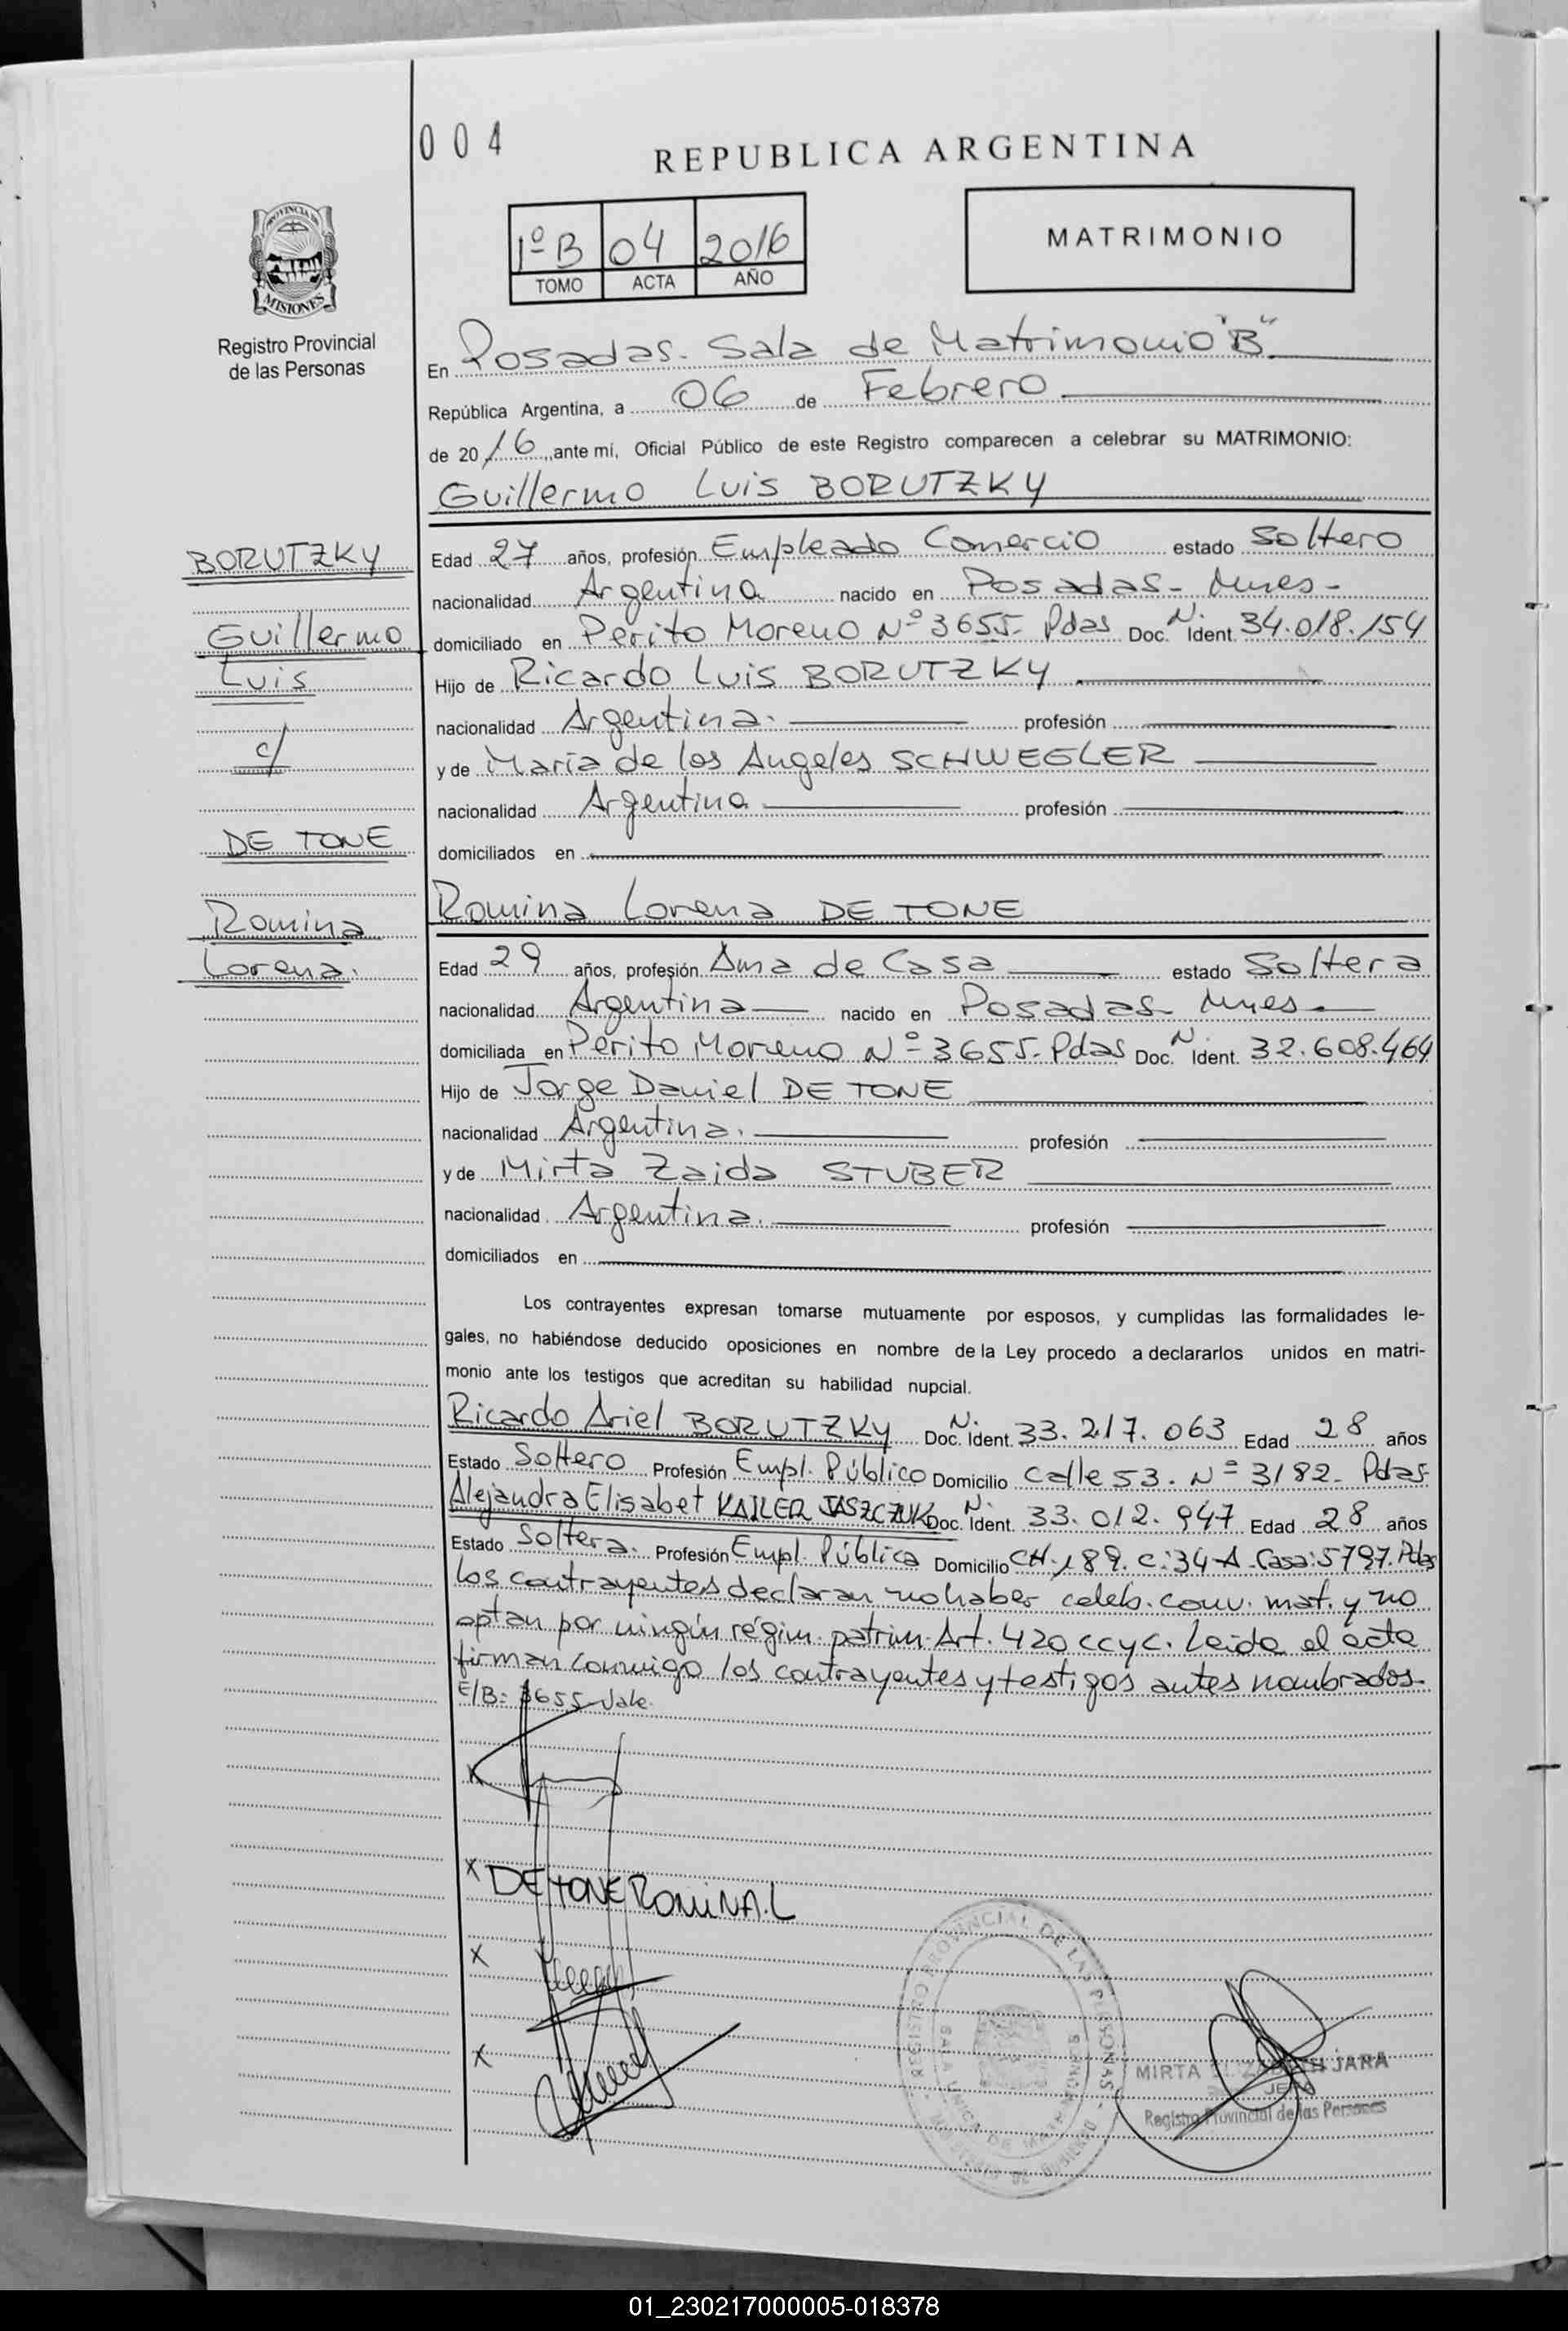 004
REPUBLICA ARGENTINA
1º B 04 2016
TOMO ACTA AÑO
MATRIMONIO
PROVINCIA DE
MISIONES
Registro Provincial
de las Personas
En Posadas. Sala de Matrimonio "B"
República Argentina, a 06 de Febrero
de 2016, ante mí, Oficial Público de este Registro comparecen a celebrar su MATRIMONIO:
Guillermo Luis BORUTZKY
BORUTZKY
Guillermo
Luis
c/
DE TONE
Romina
Lorena.
Edad 27 años, profesión Empleado Comercio estado Soltero
nacionalidad Argentina nacido en Posadas - Mnes -
domiciliado en Perito Moreno Nº 3655- Pdas Doc. N. Ident. 34.018.154
Hijo de Ricardo Luis BORUTZKY
nacionalidad Argentina. profesión
y de Maria de los Angeles SCHWEGLER
nacionalidad Argentina profesión
domiciliados en
Romina Lorena DE TONE
Edad 29 años, profesión Ama de Casa estado Soltera
nacionalidad Argentina nacido en Posadas - Mnes -
domiciliada en Perito Moreno Nº 3655- Pdas Doc. N. Ident. 32.608.464
Hijo de Jorge Daniel DE TONE
nacionalidad Argentina. profesión
y de Mirta Zaida STUBER
nacionalidad Argentina. profesión
domiciliados en
Los contrayentes expresan tomarse mutuamente por esposos, y cumplidas las formalidades le-
gales, no habiéndose deducido oposiciones en nombre de la Ley procedo a declararlos unidos en matri-
monio ante los testigos que acreditan su habilidad nupcial.
Ricardo Ariel BORUTZKY Doc. N. Ident. 33.217.063 Edad 28 años
Estado Soltero Profesión Empl. Público Domicilio Calle 53. Nº 3182- Pdas-
Alejandra Elisabet KAILER JASZCZUK Doc. N. Ident. 33.012.947 Edad 28 años
Estado Soltera. Profesión Empl. Pública Domicilio CH. 189. C:34-A-Casa:5797. Pdas
Los contrayentes declaran no haber celeb. conv. mat. y no
optan por ningún régim. patrim. Art. 420 CCyC. Leida el acta
firman conmigo los contrayentes y testigos antes nombrados-
E/B: 3655- Vale.
X
X DE TONE ROMINA.L
X
X
REGISTRO PROVINCIAL DE LAS PERSONAS
MIRTA JARA
JEFE
Registro Provincial de las Personas
01_230217000005-018378